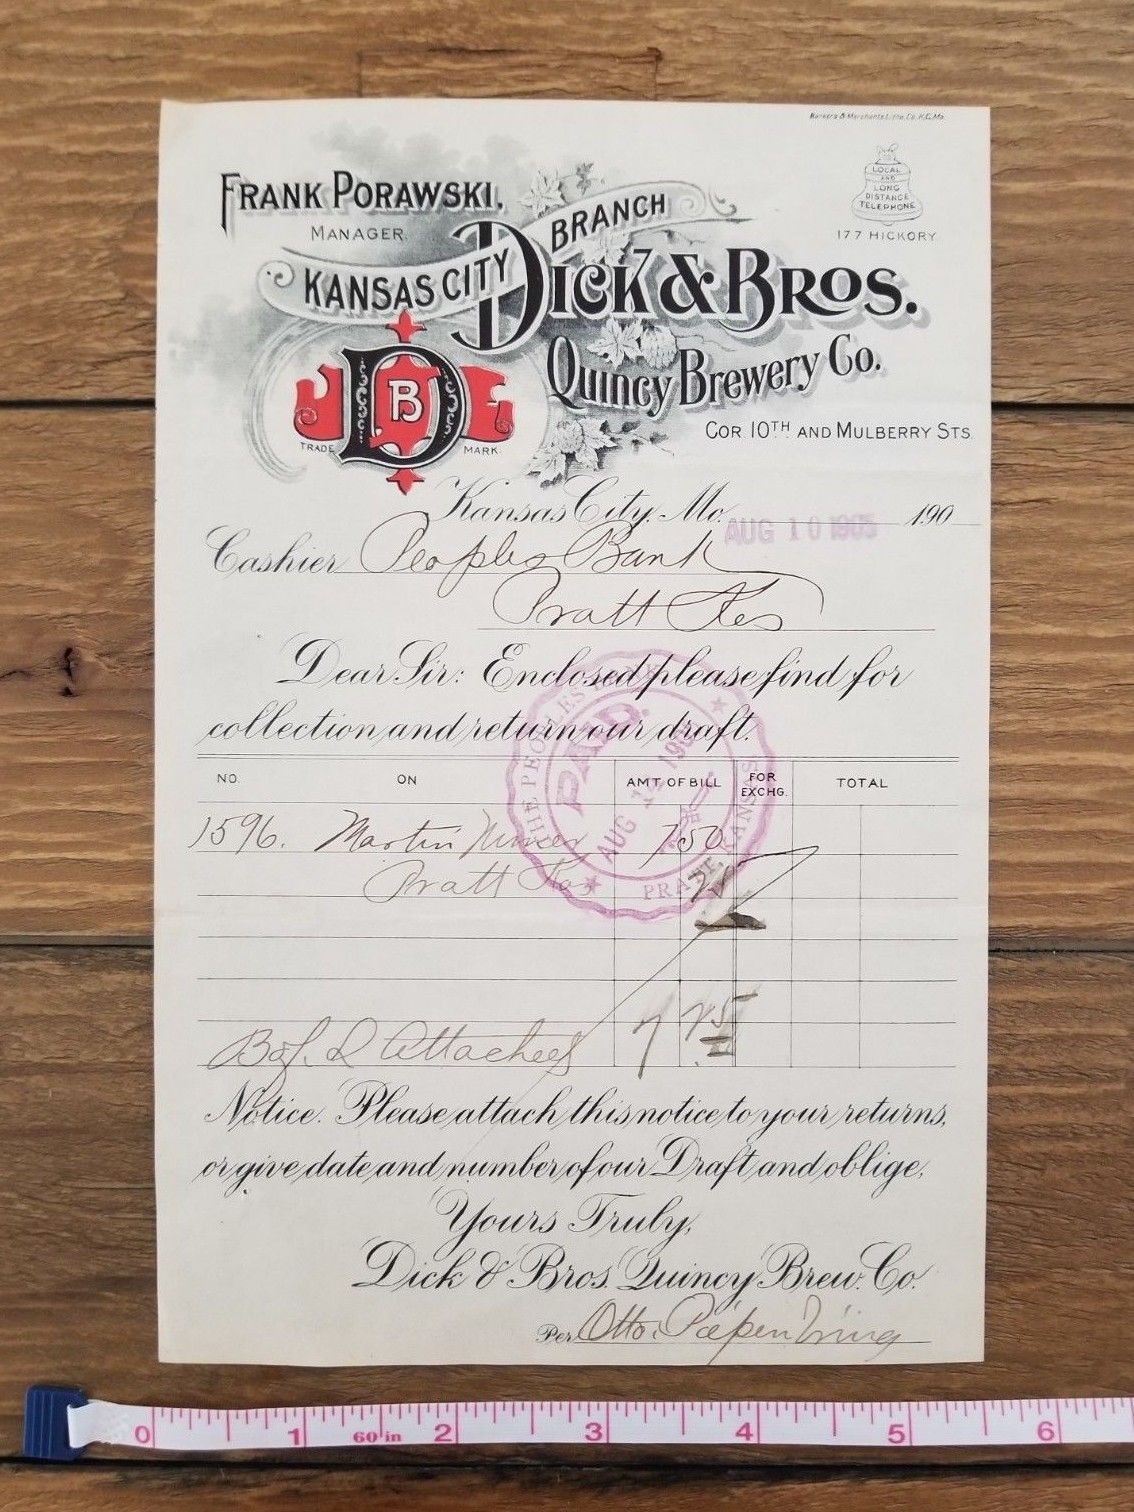 Bankers & Merchants Litho. Co. K.C. Mo.
FRANK PORAWSKI,
MANAGER.
LOCAL
AND
LONG
DISTANCE
TELEPHONE
177 HICKORY
KANSAS CITY BRANCH
DICK & BROS.
QUINCY BREWERY CO.
DB
TRADE MARK.
COR 10TH AND MULBERRY STS
Kansas City, Mo. AUG 10 1905 190
Cashier Peoples Bank
Pratt Kes
Dear Sir: Enclosed please find for
collection and return our draft.
NO. ON AMT OF BILL FOR EXCHG. TOTAL
1596. Martin 7 50
Pratt Kas 25
THE PEOPLES BANK
PAID.
AUG 190
PRATT KANSAS
B of L Attached 7 25
Notice. Please attach this notice to your returns,
or give date and number of our Draft and oblige,
Yours Truly,
Dick & Bros. Quincy Brew. Co.
Per Otto Papenbring
0 1 60 in 2 3 4 5 6